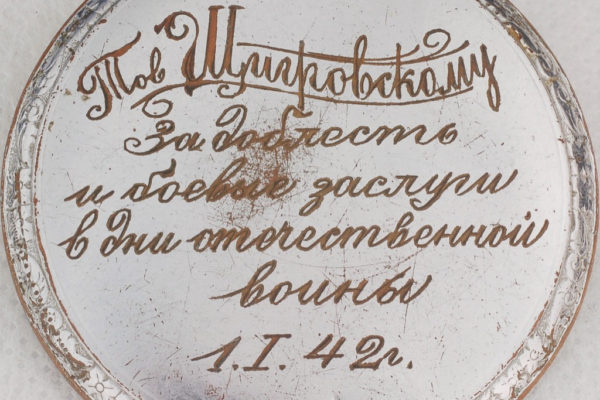 Тов Щигровскому
За доблесть
и боевые заслуги
в дни отечественной
воины
1.I.42г.